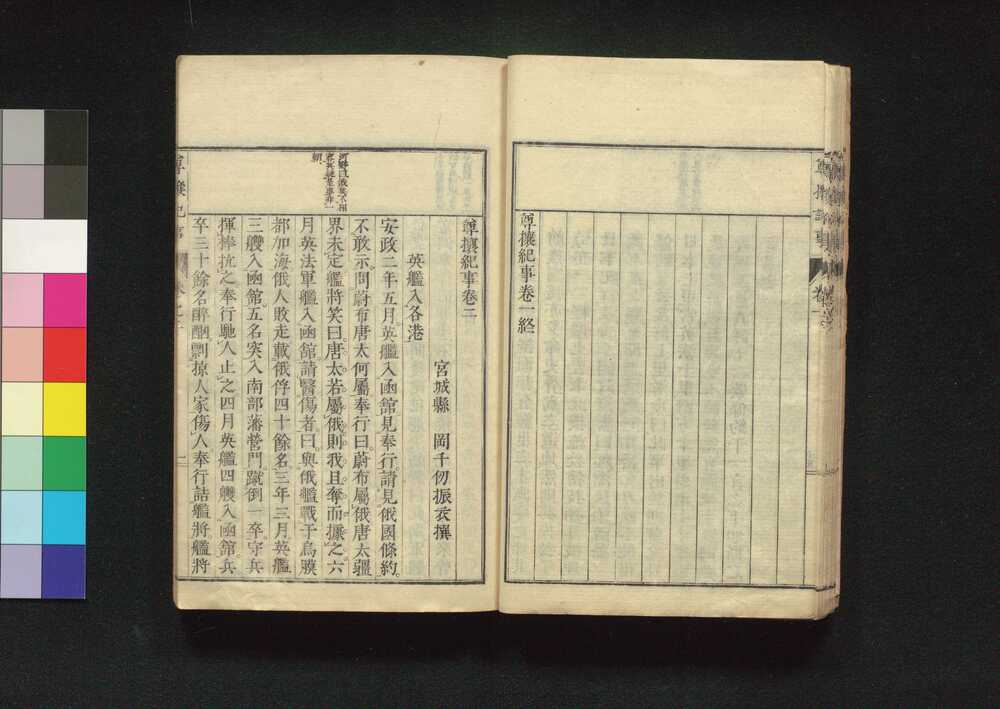 尊攘紀事卷一終
尊攘紀事卷二
宮城縣 岡千仞振衣撰
英艦入各港
安政二年五月英艦入函館見奉行請見俄國條約
不敢示問蔚布唐太何屬奉行曰蔚布屬俄唐太疆
界未定艦將笑曰唐太若屬俄則我且奪而據之六
月英法軍艦入函館請醫傷者曰與俄艦戰于烏騍
都加海俄人敗走載俄俘四十餘名三年三月英艦
三艘入函館五名突入南部藩營門蹴倒一卒守兵
揮捧抗之奉行馳人止之四月英艦四艘入函館兵
卒三十餘名醉酗剽掠人家傷人奉行詰艦將艦將